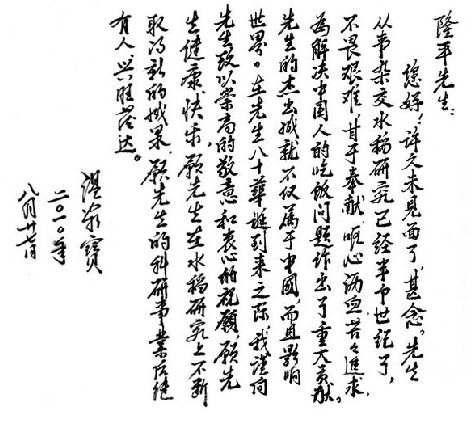 隆平先生：
您好！许久未见面了，甚念。先生
从事杂交水稻研究已经半个世纪了，
不畏艰难，甘于奉献，呕心沥血，苦々追求，
为解决中国人的吃饭问题作出了重大贡献。
先生的杰出成就不仅属于中国，而且影响
世界。在先生八十华诞到来之际，我谨向
先生致以崇高的敬意和衷心的祝愿，愿先
生健康、快乐，愿先生在水稻研究上不断
取得新的成果，愿先生的科研事业后继
有人、兴旺发达。
温家寶
二〇一〇年
八月廿七日